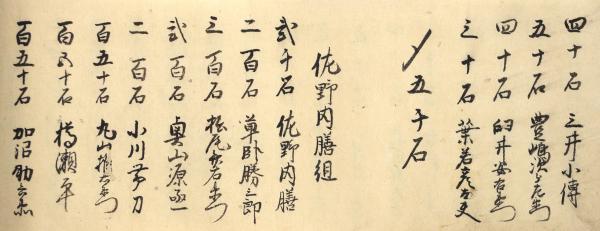 四十石 三井小傳
五十石 豊嶋源左衛門
四十石 臼井安右衛門
三十石 葉若彦左夫
〆五千石
佐野内膳組
弐千石 佐野内膳
二百石 草卧勝三郎
三百石 松尾 右衛門
弐百石 奥山源
二百石 小川帯刀
百五十石 丸山 右衛門
百五十石 樽瀬
百五十石 加沼助